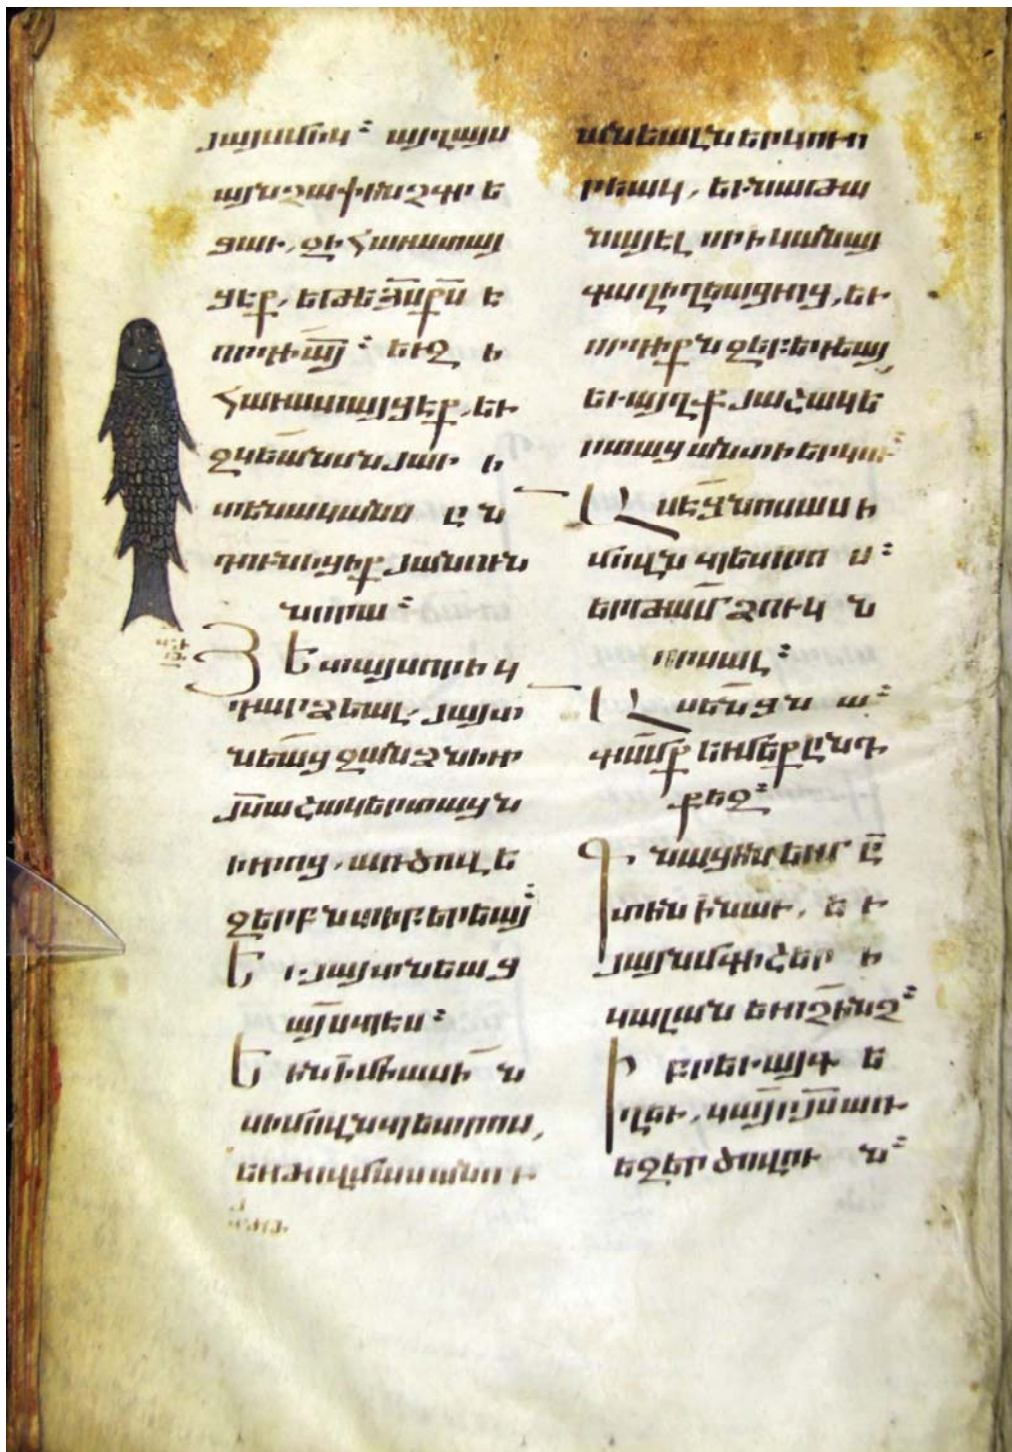 յայսմիկ։ այղ այս
այնչափ ինչ գրե
ցաւ, զի հաւատայ
ցէք, եթե Յ̅ս Ք̅ս է
որդի ա̅յ։ եւ զի
հաւատայցէք, եւ
զկեանսն յաւի
տենականս ըն
դունիցիք յանուն
նորա։
Յետ այսորիկ
դարձեալ յայտ
նեաց զանձն իւր
յ̅ս աշակերտացն
իւրոց, առ ծովե
զերբն տիբերեայ։
Եւ յայտնեաց
այսպես։
Եւ էին ի միասին
սիմովն պետրոս,
եւ թովմաս անու
անեալն երկուո
րեակ, եւ նաթա
նայել որ ի կանայ
գաղիղեացւոց, եւ
որդիքն զեբեդեայ,
եւ այղք յաշակե
րտաց անտի երկու։
Ասէ ցնոսա սի
մովն պետրոս։
երթամ ձուկն
որսալ։
Ասեն ցնա։
գամք եւ մեք ընդ
քեզ։
Գնացին եւ մ
տին ի նաւ, եւ
յայնմ գիշերի
կալան եւ ոչինչ։
Իբրեւ այգ ե
ղեւ, կայր յ̅ս առ
եզեր ծովուն։